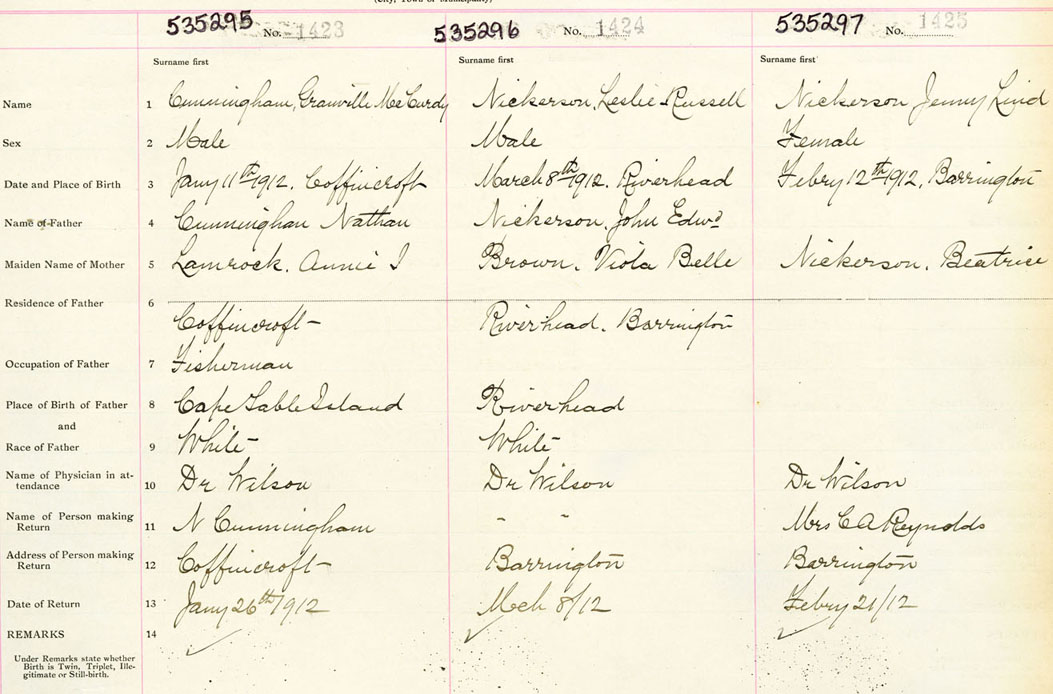 (City, Town or Municipality)
535295 No. 1423 535296 No. 1424 535297 No. 1425
Surname first Surname first Surname first
Name 1 Cunningham, Granville McCurdy Nickerson, Leslie Russell Nickerson Jenny Lind
Sex 2 Male Male Female
Date and Place of Birth 3 Jany 11th 1912. Coffincroft March 8th 1912. Riverhead Febry 12th 1912, Barrington
Name of Father 4 Cunningham Nathan Nickerson, John Edwd
Maiden Name of Mother 5 Lamrock. Annie I Brown. Viola Belle Nickerson. Beatrice
Residence of Father 6
Coffincroft Riverhead. Barrington
Occupation of Father 7 Fisherman
Place of Birth of Father 8 Cape Sable Island Riverhead
and
Race of Father 9 White White
Name of Physician in at-
tendance 10 Dr Wilson Dr Wilson Dr Wilson
Name of Person making
Return 11 N Cunningham " " Mrs C A Reynolds
Address of Person making
Return 12 Coffincroft Barrington Barrington
Date of Return 13 Jany 26th 1912 Mch 8/12 Febry 21/12
REMARKS 14
Under Remarks state whether
Birth is Twin, Triplet, Ille-
gitimate or Still-birth.